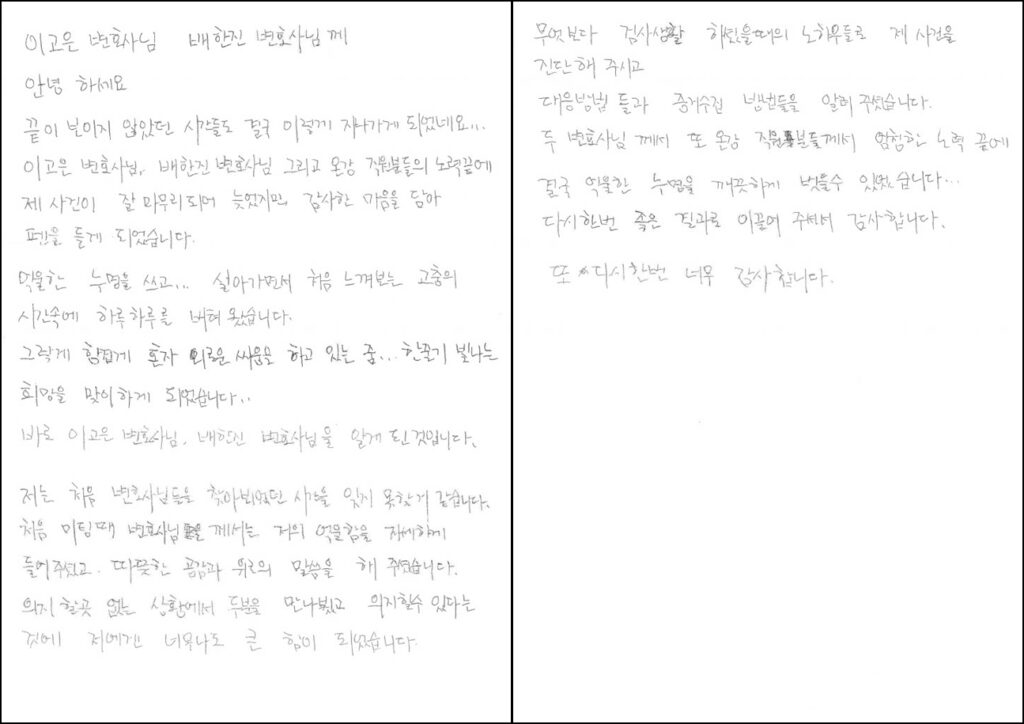 이고은 변호사님 배한진 변호사님께
안녕 하세요
끝이 보이지 않았던 시간들도 결국 이렇게 지나가게 되었네요...
이고은 변호사님, 배한진 변호사님 그리고 온강 직원분들의 노력끝에
제 사건이 잘 마무리 되어 늦었지만, 감사한 마음을 담아
펜을 들게 되었습니다.
억울한 누명을 쓰고... 살아가면서 처음 느껴보는 고충의
시간속에 하루하루를 버텨 왔습니다.
그렇게 힘겹게 혼자 외로운 싸움을 하고 있는 중... 한줄기 빛나는
희망을 맞이하게 되었습니다..
바로 이고은 변호사님, 배한진 변호사님을 알게 된것입니다.
저는 처음 변호사님들을 찾아뵈었던 시간을 잊지 못할거 같습니다.
처음 미팅때 변호사님들께서는 저의 억울함을 자세하게
들어주셨고. 따뜻한 공감과 위로의 말씀을 해 주셨습니다.
의지 할곳 없는 상황에서 두분을 만나뵙고 의지할수 있다는
것에 저에겐 너무나도 큰 힘이 되었습니다.
무엇보다 검사생활 하셨을때의 노하우들로 제 사건을
진단해 주시고
대응방법 들과 증거수집 방법들을 알려 주셨습니다.
두 변호사님 께서 또 온강 직원분들께서 엄청한 노력 끝에
결국 억울한 누명을 깨끗하게 벗을수 있었습니다...
다시한번 좋은 결과로 이끌어 주셔서 감사합니다.
또 다시한번 너무 감사합니다.